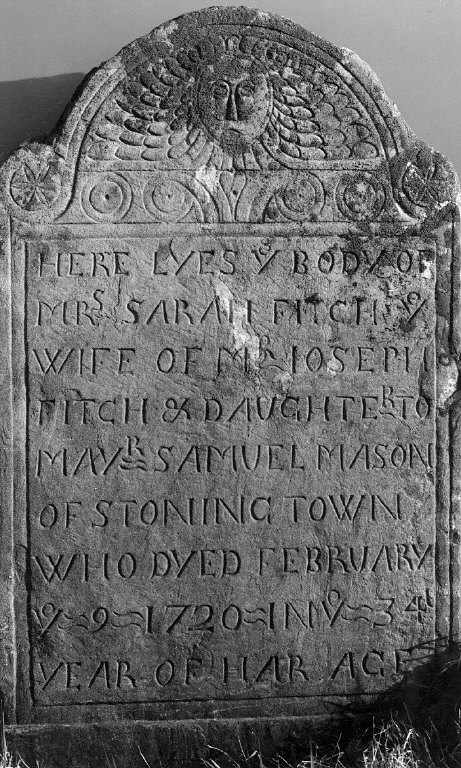 HERE LYES Yᵉ BODY OF
MRˢ SARAH FITCH Yᵉ
WIFE OF Mᴿ IOSEPH
FITCH & DAUGHTEᴿ TO
MAYᴿ SAMUEL MASON
OF STONING TOWN
WHO DYED FEBRUARY
Yᵉ≈9≈1720≈IN Yᵉ≈34ᵗ
YEAR OF HAR AGE